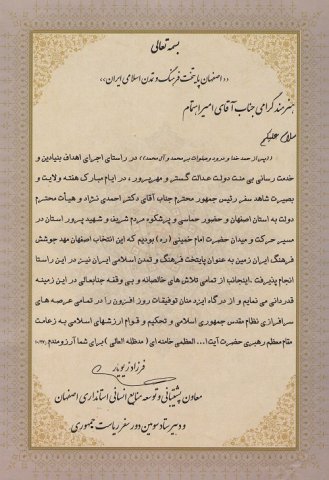 بسمه تعالی
«اصفهان پایتخت فرهنگ و تمدن اسلامی ایران»
هنرمند گرامی جناب آقای امیر اهتمام
سلام علیکم
(پس از حمد خدا و درود و صلوات بر محمد و آل محمد)) در راستای اجرای اهداف بنیادین و
خدمت رسانی بی منت دولت عدالت گستر و مهرپرور، در ایام مبارک هفته ولایت و
بصیرت شاهد سفر رئیس جمهور محترم جناب آقای دکتر احمدی نژاد و هیأت محترم
دولت به استان اصفهان و حضور حماسی و پرشکوه مردم شریف و شهید پرور استان در
مسیر حرکت و میدان حضرت امام خمینی (ره) بودیم که این انتخاب اصفهان مهد جوشش
فرهنگ ایران زمین به عنوان پایتخت فرهنگ و تمدن اسلامی ایران نیز، در این راستا
انجام پذیرفت. اینجانب از تمامی تلاش های خالصانه و بی وقفه جنابعالی در این زمینه
قدردانی می نمایم و از درگاه ایزد منان توفیقات روز افزون را در تمامی عرصه های
سرافرازی نظام مقدس جمهوری اسلامی و تحکیم و قوام ارزشهای اسلامی به زعامت
مقام معظم رهبری حضرت آیت ا... العظمی خامنه ای (مدظله العالی) برای شما آرزومندم.
فرزاد زیویار
معاون پشتیبانی و توسعه منابع انسانی استانداری اصفهان
و دبیر ستاد سومین دور سفر ریاست جمهوری